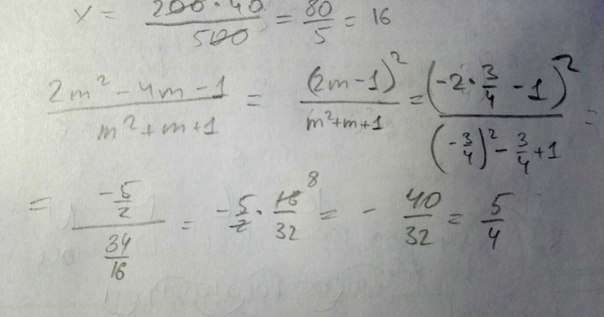 x = (200·40)/500 = 80/5 = 16
(2m² - 4m - 1)/(m² + m + 1) = (2m - 1)²/(m² + m + 1) = (-2·3/4 - 1)²/((-3/4)² - 3/4 + 1) =
= (-5/2)/(34/16) = -5/2 · 16/32 8 = - 40/32 = 5/4